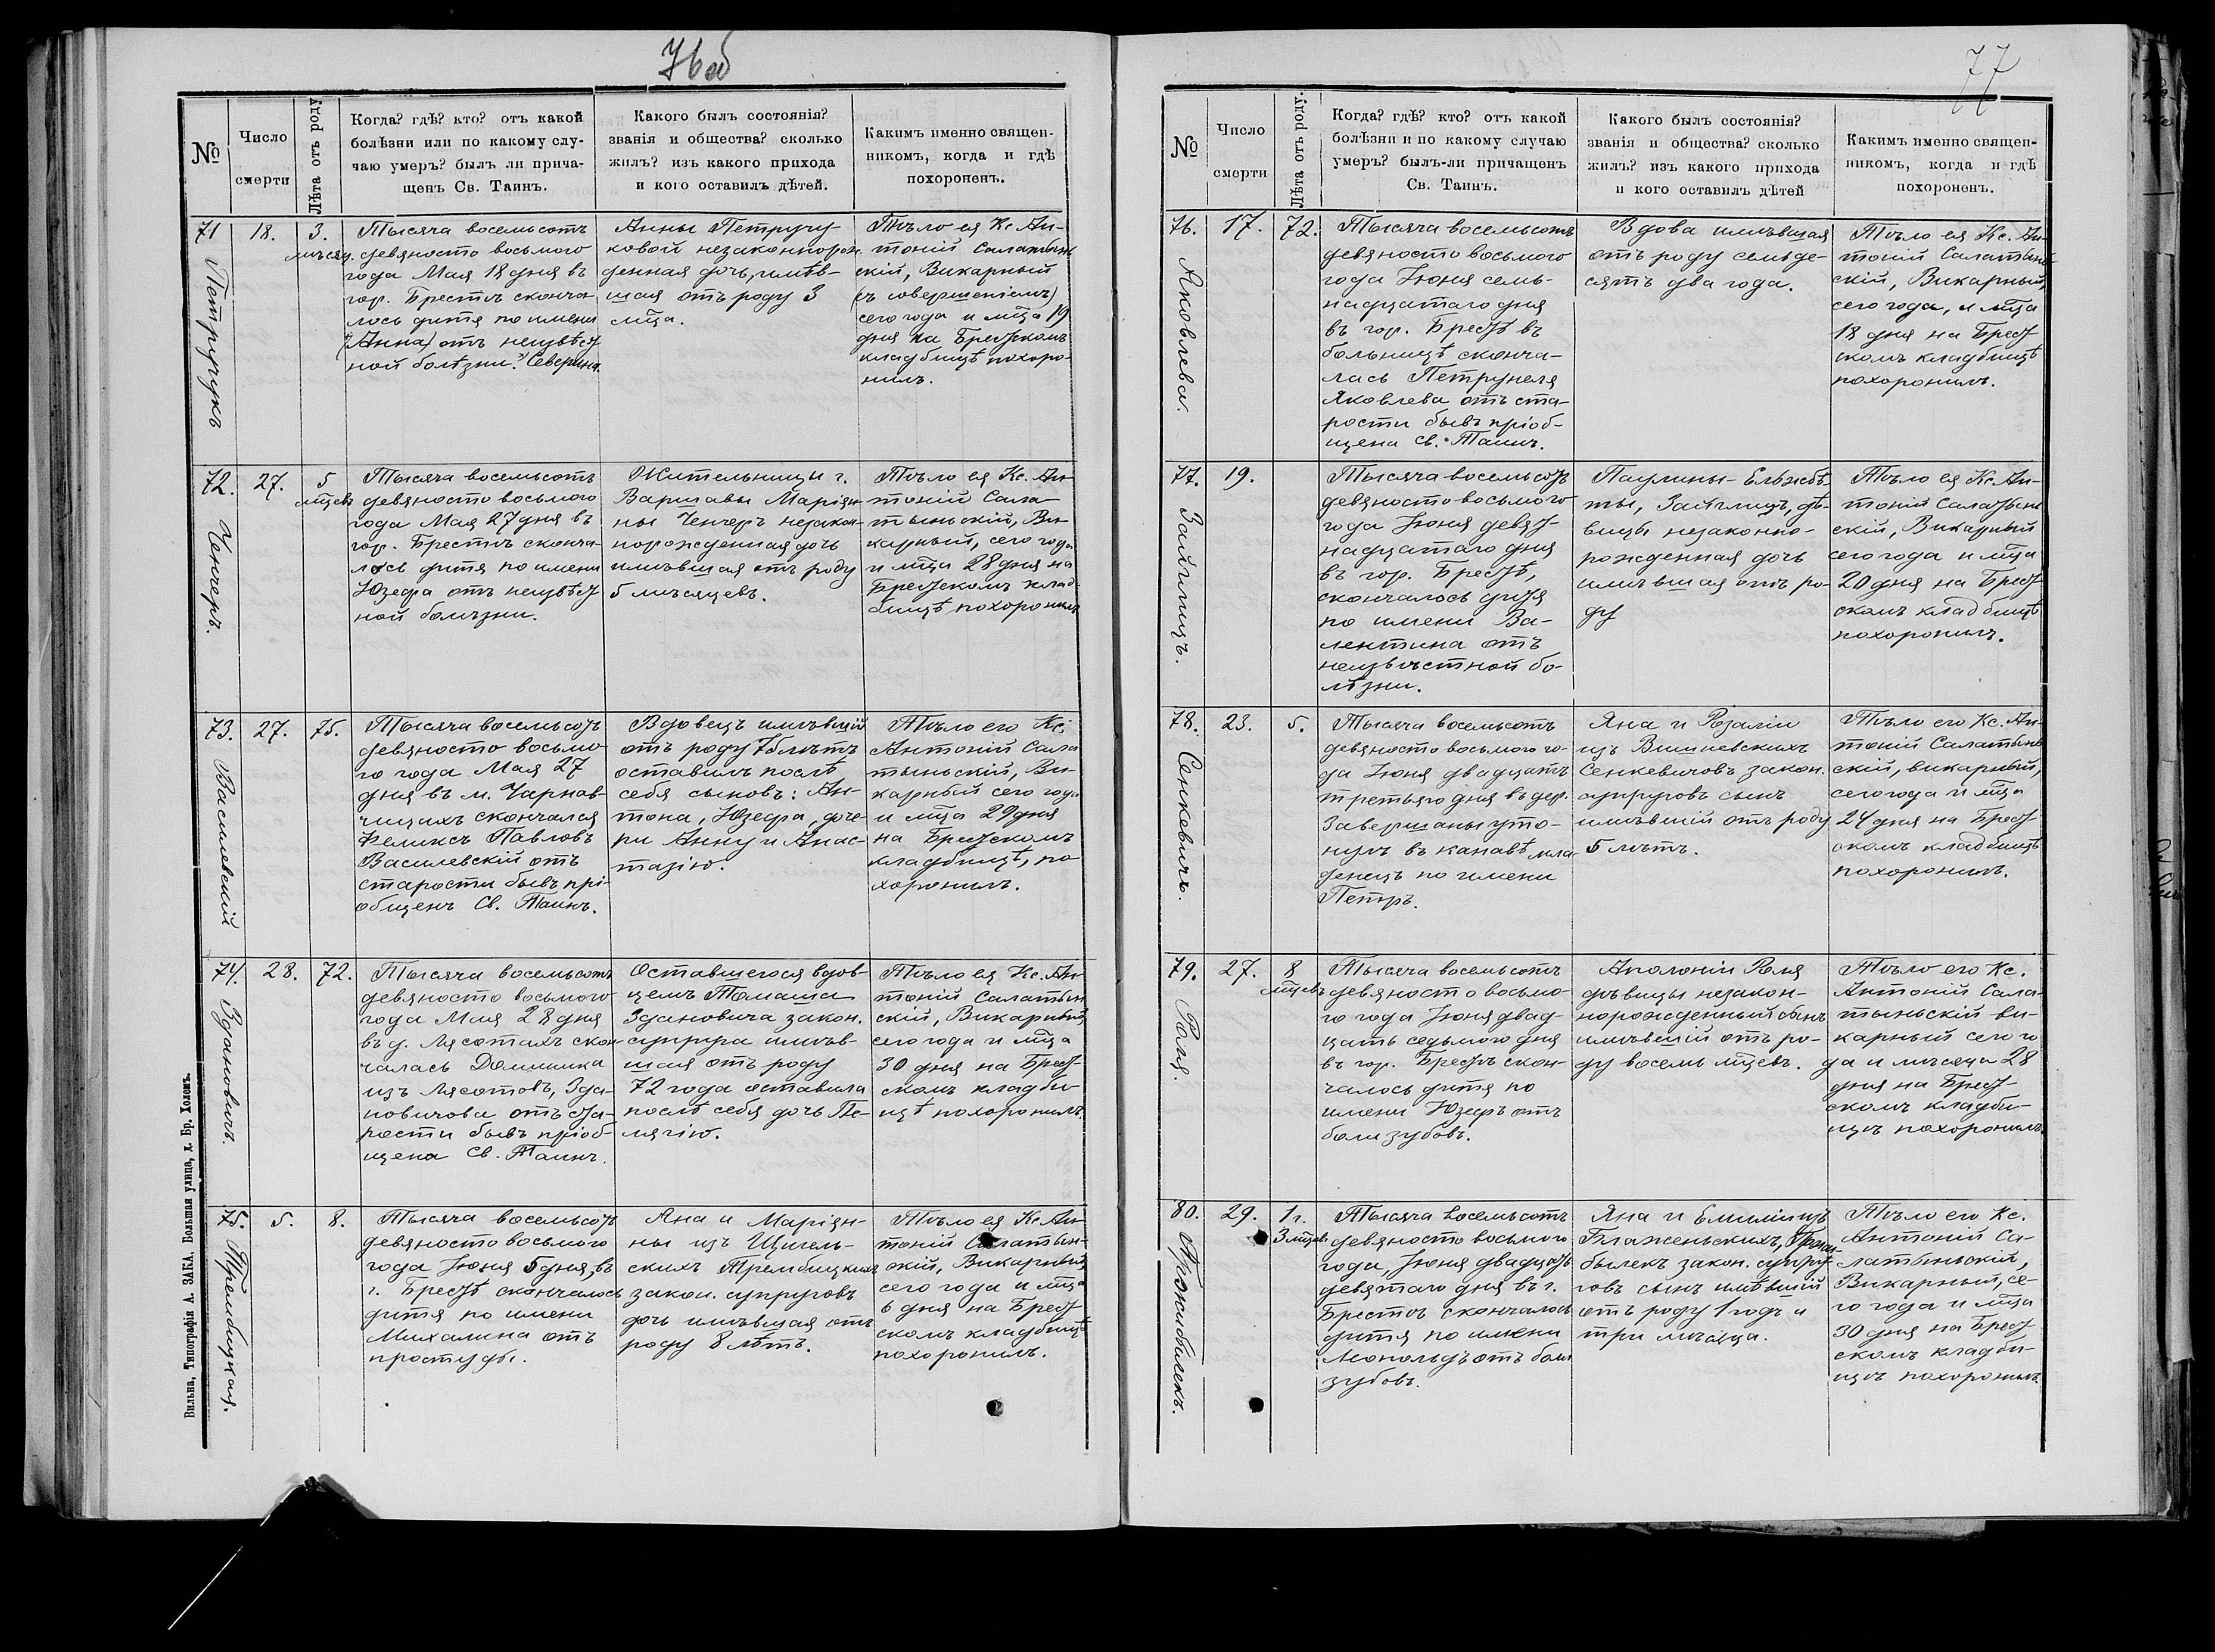 76об
№
Число
смерти
Лѣта отъ роду
Когда? гдѣ? кто? отъ какой
болѣзни или по какому слу-
чаю умеръ? былъ ли прича-
щенъ Св. Таинъ.
Какого былъ состоянія?
званія и общества? сколько
жилъ? изъ какого прихода
и кого оставилъ дѣтей.
Какимъ именно священ-
никомъ, когда и гдѣ
похороненъ.
71
Петручукъ
18.
3.
мѣсяц.
Тысяча восемьсотъ
девяносто восьмого
года Мая 18 дня въ
гор. Брестѣ сконча
лось дитя по имени
(Анна) отъ неизвѣст
ной болѣзни. Северина.
Анны Петручу-
ковой незаконнорож
денная дочь, имѣв-
шая отъ роду 3
мца.
Тѣло ея Кс. Ан-
тоній Салатынь
скій, Викарный
(съ совершеніемъ)
сего года и мца 19
дня на Брестскомъ
кладбищѣ похоро-
нилъ.
72.
Ченчеръ.
27.
5
мцевъ
Тысяча восемьсотъ
девяносто восьмого
года Мая 27 дня въ
гор. Брестѣ сконча-
лось дитя по имени
Юзефа отъ неизвѣст
ной болѣзни.
Жительницы г.
Варшавы Маріан-
ны Ченчеръ незакон-
норожденная дочь
имѣвшая отъ роду
5 мѣсяцевъ.
Тѣло ея Кс. Ан
тоній Сала-
тыньскій, Ви
карный, сего года
и мца 28 дня на
Брестскомъ клад-
бищѣ похоронилъ
73.
Василевскій
27.
75.
Тысяча восемьсотъ
девяносто восьмо
го года Мая 27
дня въ м. Чарнав-
чицахъ скончался
Феликсъ Павловъ
Василевскій отъ
старости бывъ прі-
общенъ Св. Таинъ.
Вдовецъ имѣвшій
отъ роду 75 лѣтъ
оставилъ послѣ
себя сыновъ: Ан-
тона, Юзефа, доче-
ри Анну и Анас-
тазію.
Тѣло его Кс.
Антоній Сала
тыньскій, Ви-
карный сего года
и мца 29 дня
на Брестскомъ
кладбищѣ, по
хоронилъ.
74.
Здановичъ.
28.
72.
Тысяча восемьсотъ
девяносто восьмого
года Мая 28 дня
въ д. Лясотахъ скон
чалась Доминика
изъ Лясотовъ, Зда-
новичова отъ ста-
рости бывъ пріоб-
щена Св. Таинъ.
Оставшегося вдов-
цемъ Томаша
Здановича закон.
супруга имѣв-
шая отъ роду
72 года оставила
послѣ себя дочь Пе-
лягію.
Тѣло ея Кс. Ан
тоній Салатын
скій, Викарный
сего года и мца
30 дня на Брест
скомъ кладби
щѣ похоронилъ.
75.
Трембицкая.
5.
8.
Тысяча восемьсотъ
девяносто восьмого
года Іюня 5 дня, въ
г. Брестѣ скончалось
дитя по имени
Михалина отъ
простуды.
Яна и Маріан-
ны изъ Щигель-
скихъ Трембицкихъ
закон. супруговъ
дочь имѣвшая отъ
роду 8 лѣтъ.
Тѣло ея Кс. Ан
тоній Салатын-
скій, Викарный
сего года и мца
6 дня на Брест
скомъ кладбищѣ
похоронилъ.
Вильна, Типографія А. ЗАКА. Большая улица, д. Бр. Холемъ.
77
№
Число
смерти
Лѣта отъ роду.
Когда? гдѣ? кто? отъ какой
болѣзни и по какому случаю
умеръ? былъ-ли причащенъ
Св. Таинъ.
Какого былъ состоянія?
званія и общества? сколько
жилъ? изъ какого прихода
и кого оставилъ дѣтей
Какимъ именно священ-
никомъ, когда и гдѣ
похороненъ.
76.
Яковлева.
17.
72.
Тысяча восемьсотъ
девяносто восьмого
года Іюня семь-
надцатаго дня
въ гор. Брестѣ въ
больницѣ сконча-
лась Петрунеля
Яковлева отъ ста-
рости бывъ пріоб-
щена Св. Таинъ.
Вдова имѣвшая
отъ роду семьде-
сятъ два года.
Тѣло ея Кс. Ан-
тоній Салатынь
скій, Викарный,
сего года, и мца
18 дня на Брест
скомъ кладбищѣ
похоронилъ.
77.
Зайглицъ.
19.
Тысяча восемьсотъ
девяносто восьмого
года Іюня девят-
надцатаго дня
въ гор. Брестѣ,
скончалось дитя
по имени Ва-
лентина отъ
неизвѣстной бо-
лѣзни.
Паулины-Ельжбѣ
ты, Зайглицъ, дѣ-
вицы незаконно-
рожденная дочь
имѣвшая отъ ро-
ду
Тѣло ея Кс. Ан-
тоній Салатынь
скій, Викарный
сего года и мца
20 дня на Брест
скомъ кладбищѣ
похоронилъ.
78.
Сенкевичъ.
23.
5.
Тысяча восемьсотъ
девяносто восьмого го-
да Іюня двадцать
третьяго дня въ дер.
Завершаны уто-
нулъ въ канавѣ мла-
денецъ по имени
Петръ.
Яна и Розаліи
изъ Вишневскихъ
Сенкевичовъ закон.
супруговъ сынъ
имѣвшій отъ роду
5 лѣтъ.
Тѣло его Кс. Ан-
тоній Салатынь
скій, викарный,
сего года и мца
24 дня на Брест
скомъ кладбищѣ
похоронилъ.
79.
Роля.
27.
8
мцевъ
Тысяча восемьсотъ
девяносто восьмо-
го года Іюня двад-
цать седьмого дня
въ гор. Брестѣ скон-
чалось дитя по
имени Юзефъ отъ
боли зубовъ.
Аполоніи Роля
дѣвицы незакон-
норожденный сынъ
имѣвшій отъ ро-
ду восемь мцевъ.
Тѣло его Кс.
Антоній Сала-
тыньскій ви-
карный сего го
да и мѣсяца 28
дня на Брест-
скомъ кладби-
щѣ похоронилъ.
80.
29.
1 г.
3 мцев.
Тысяча восемьсотъ
девяносто восьмого
года, Іюня двадцать
девятаго дня въ г.
Брестѣ скончалось
дитя по имени
Леопольдъ отъ боли
зубовъ.
Яна и Емиліи изъ
закон. супру-
говъ сынъ имѣвшій
отъ роду 1 годъ и
три мѣсяца.
Тѣло его Кс.
Антоній Са-
латыньскій,
Викарный, се-
го года и мца
30 дня на Брест-
скомъ кладби-
щѣ похоронилъ.